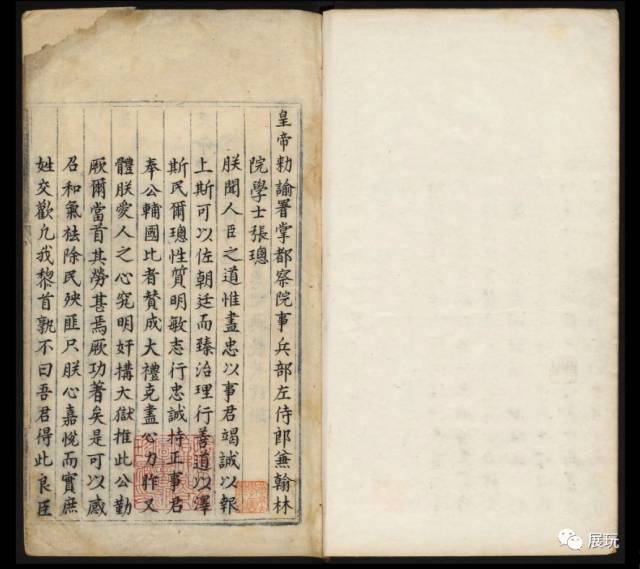 皇帝勅諭署掌都察院事兵部左侍郎兼翰林
院學士張璁
朕聞人臣之道惟盡忠以事君竭誠以報
上斯可以佐朝廷而臻治理行善道以澤
斯民爾璁性質明敏志行忠誠持正事君
奉公輔國比者贊成大禮克盡心力昨又
體朕愛人之心究明奸構大獄推此公勤
厥爾當首其勞甚焉厥功著矣是可以感
召和氣祛除民殃匪只朕心嘉悅而實庶
姓交歡凡我黎首孰不曰吾君得此良臣
展玩